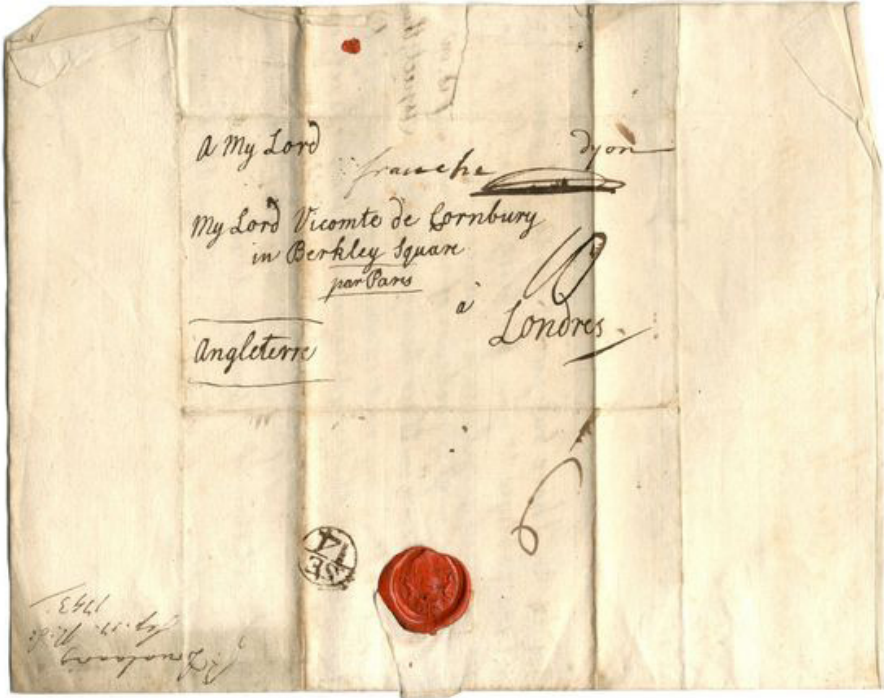 A My Lord
franche Dyon
My Lord Vicomte de Cornbury
in Berkley Square
par Paris
à
Londres
Angleterre
4
SE
1743